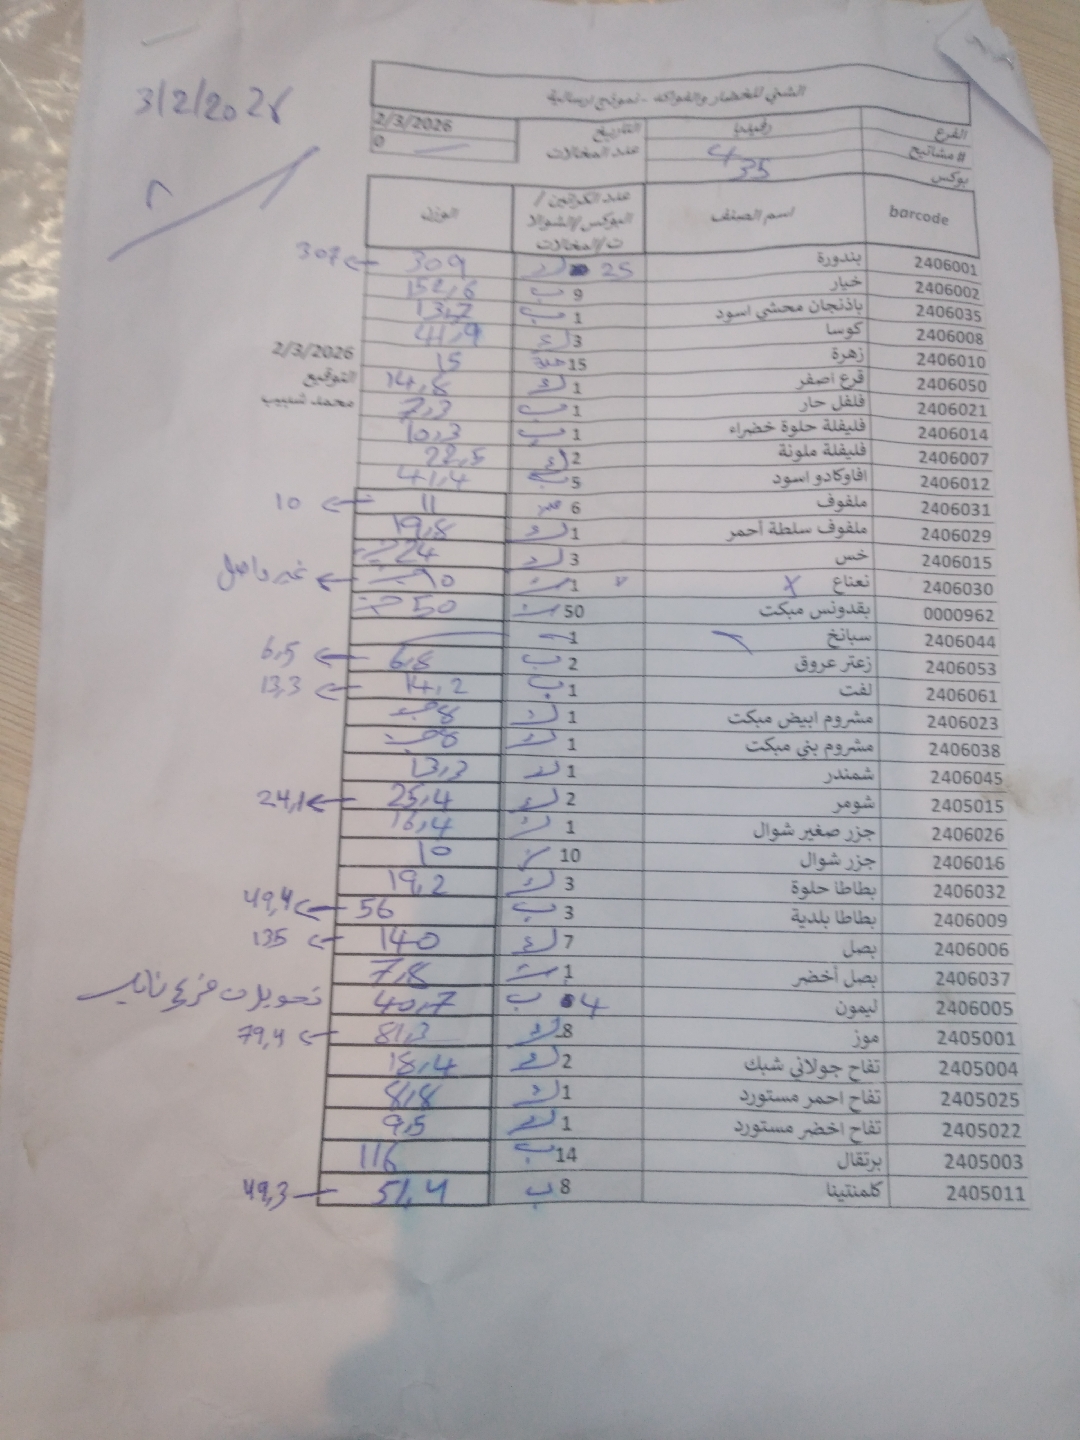 3/2/2026
الشني للخضار والفواكه - نموذج ارسالية
الفرع رفيديا التاريخ 2/3/2026
# مشاتيح 4 عدد المخالات 0
بوكس 35
barcode اسم الصنف عدد الكراتين / البوكس/الشوالات/المخالات الوزن
2406001 بندورة 25 309 ← 307
2406002 خيار 9 ب 152,6
2406035 باذنجان محشي اسود 1 ب 13,7
2406008 كوسا 3 41,9
2406010 زهرة 15 حبة 15
2/3/2026
2406050 قرع اصفر 1 14,8
التوقيع
2406021 فلفل حار 1 ب 7,3
محمد شبيب
2406014 فليفلة حلوة خضراء 1 ب 10,3
2406007 فليفلة ملونة 2 22,5
2406012 افاوكادو اسود 5 ب 41,4
2406031 ملفوف 6 11 ← 10
2406029 ملفوف سلطة أحمر 1 19,8
2406015 خس 3 24
2406030 نعناع x 1 10 ← غير واصل
0000962 بقدونس مبكت 50 50
2406044 سبانخ 1
2406053 زعتر عروق 2 ب 6,8 ← 6,5
2406061 لفت 1 ب 14,2 ← 13,3
2406023 مشروم ابيض مبكت 1 8
2406038 مشروم بني مبكت 1 8
2406045 شمندر 1 13,3
2405015 شومر 2 25,4 ← 24,1
2406026 جزر صغير شوال 1 16,4
2406016 جزر شوال 10 10
2406032 بطاطا حلوة 3 19,2
2406009 بطاطا بلدية 3 ب 56 ← 49,4
2406006 بصل 7 140 ← 135
2406037 بصل أخضر 1 7,8
2406005 ليمون 4 ب 40,7 تحويلات فرع نابلس
2405001 موز 8 81,3 ← 79,4
2405004 تفاح جولاني شبك 2 18,4
2405025 تفاح احمر مستورد 1 8,8
2405022 تفاح اخضر مستورد 1 9,5
2405003 برتقال 14 ب 116
2405011 كلمنتينا 8 ب 51,4 ← 49,3